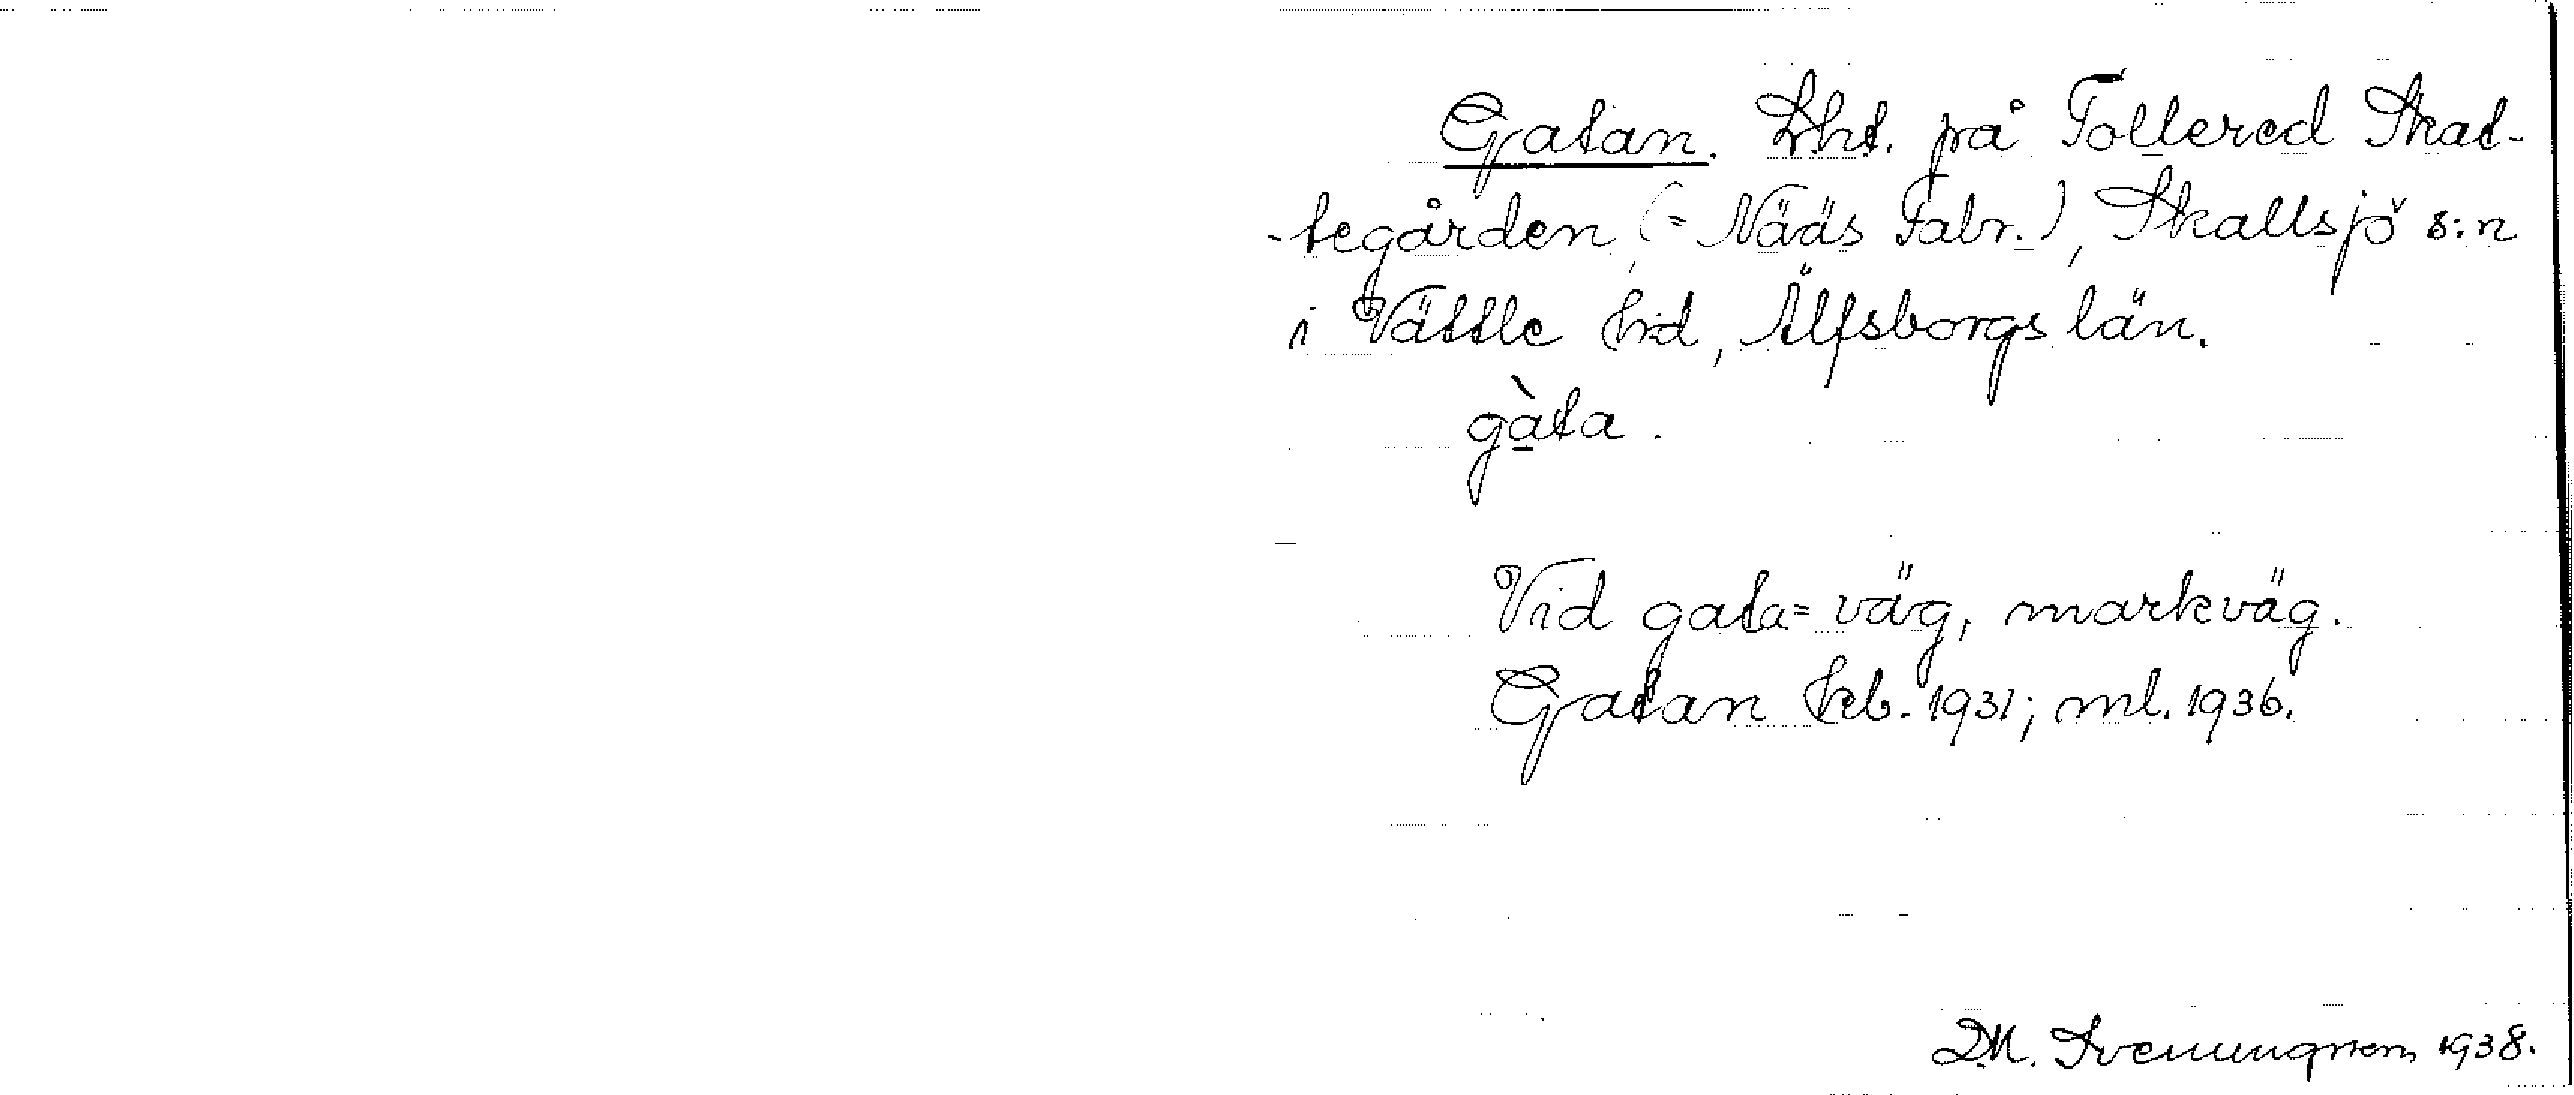 Gatan. Lht. på Tollered Skat-
-tegården (= Nääs Fabr.), Skallsjö s:n
i Vättle hd, Älfsborgs län.
gàta.
Vid gata = väg, markväg.
Gatan kb. 1931; ml. 1936.
D.M. Sveningson 1938.